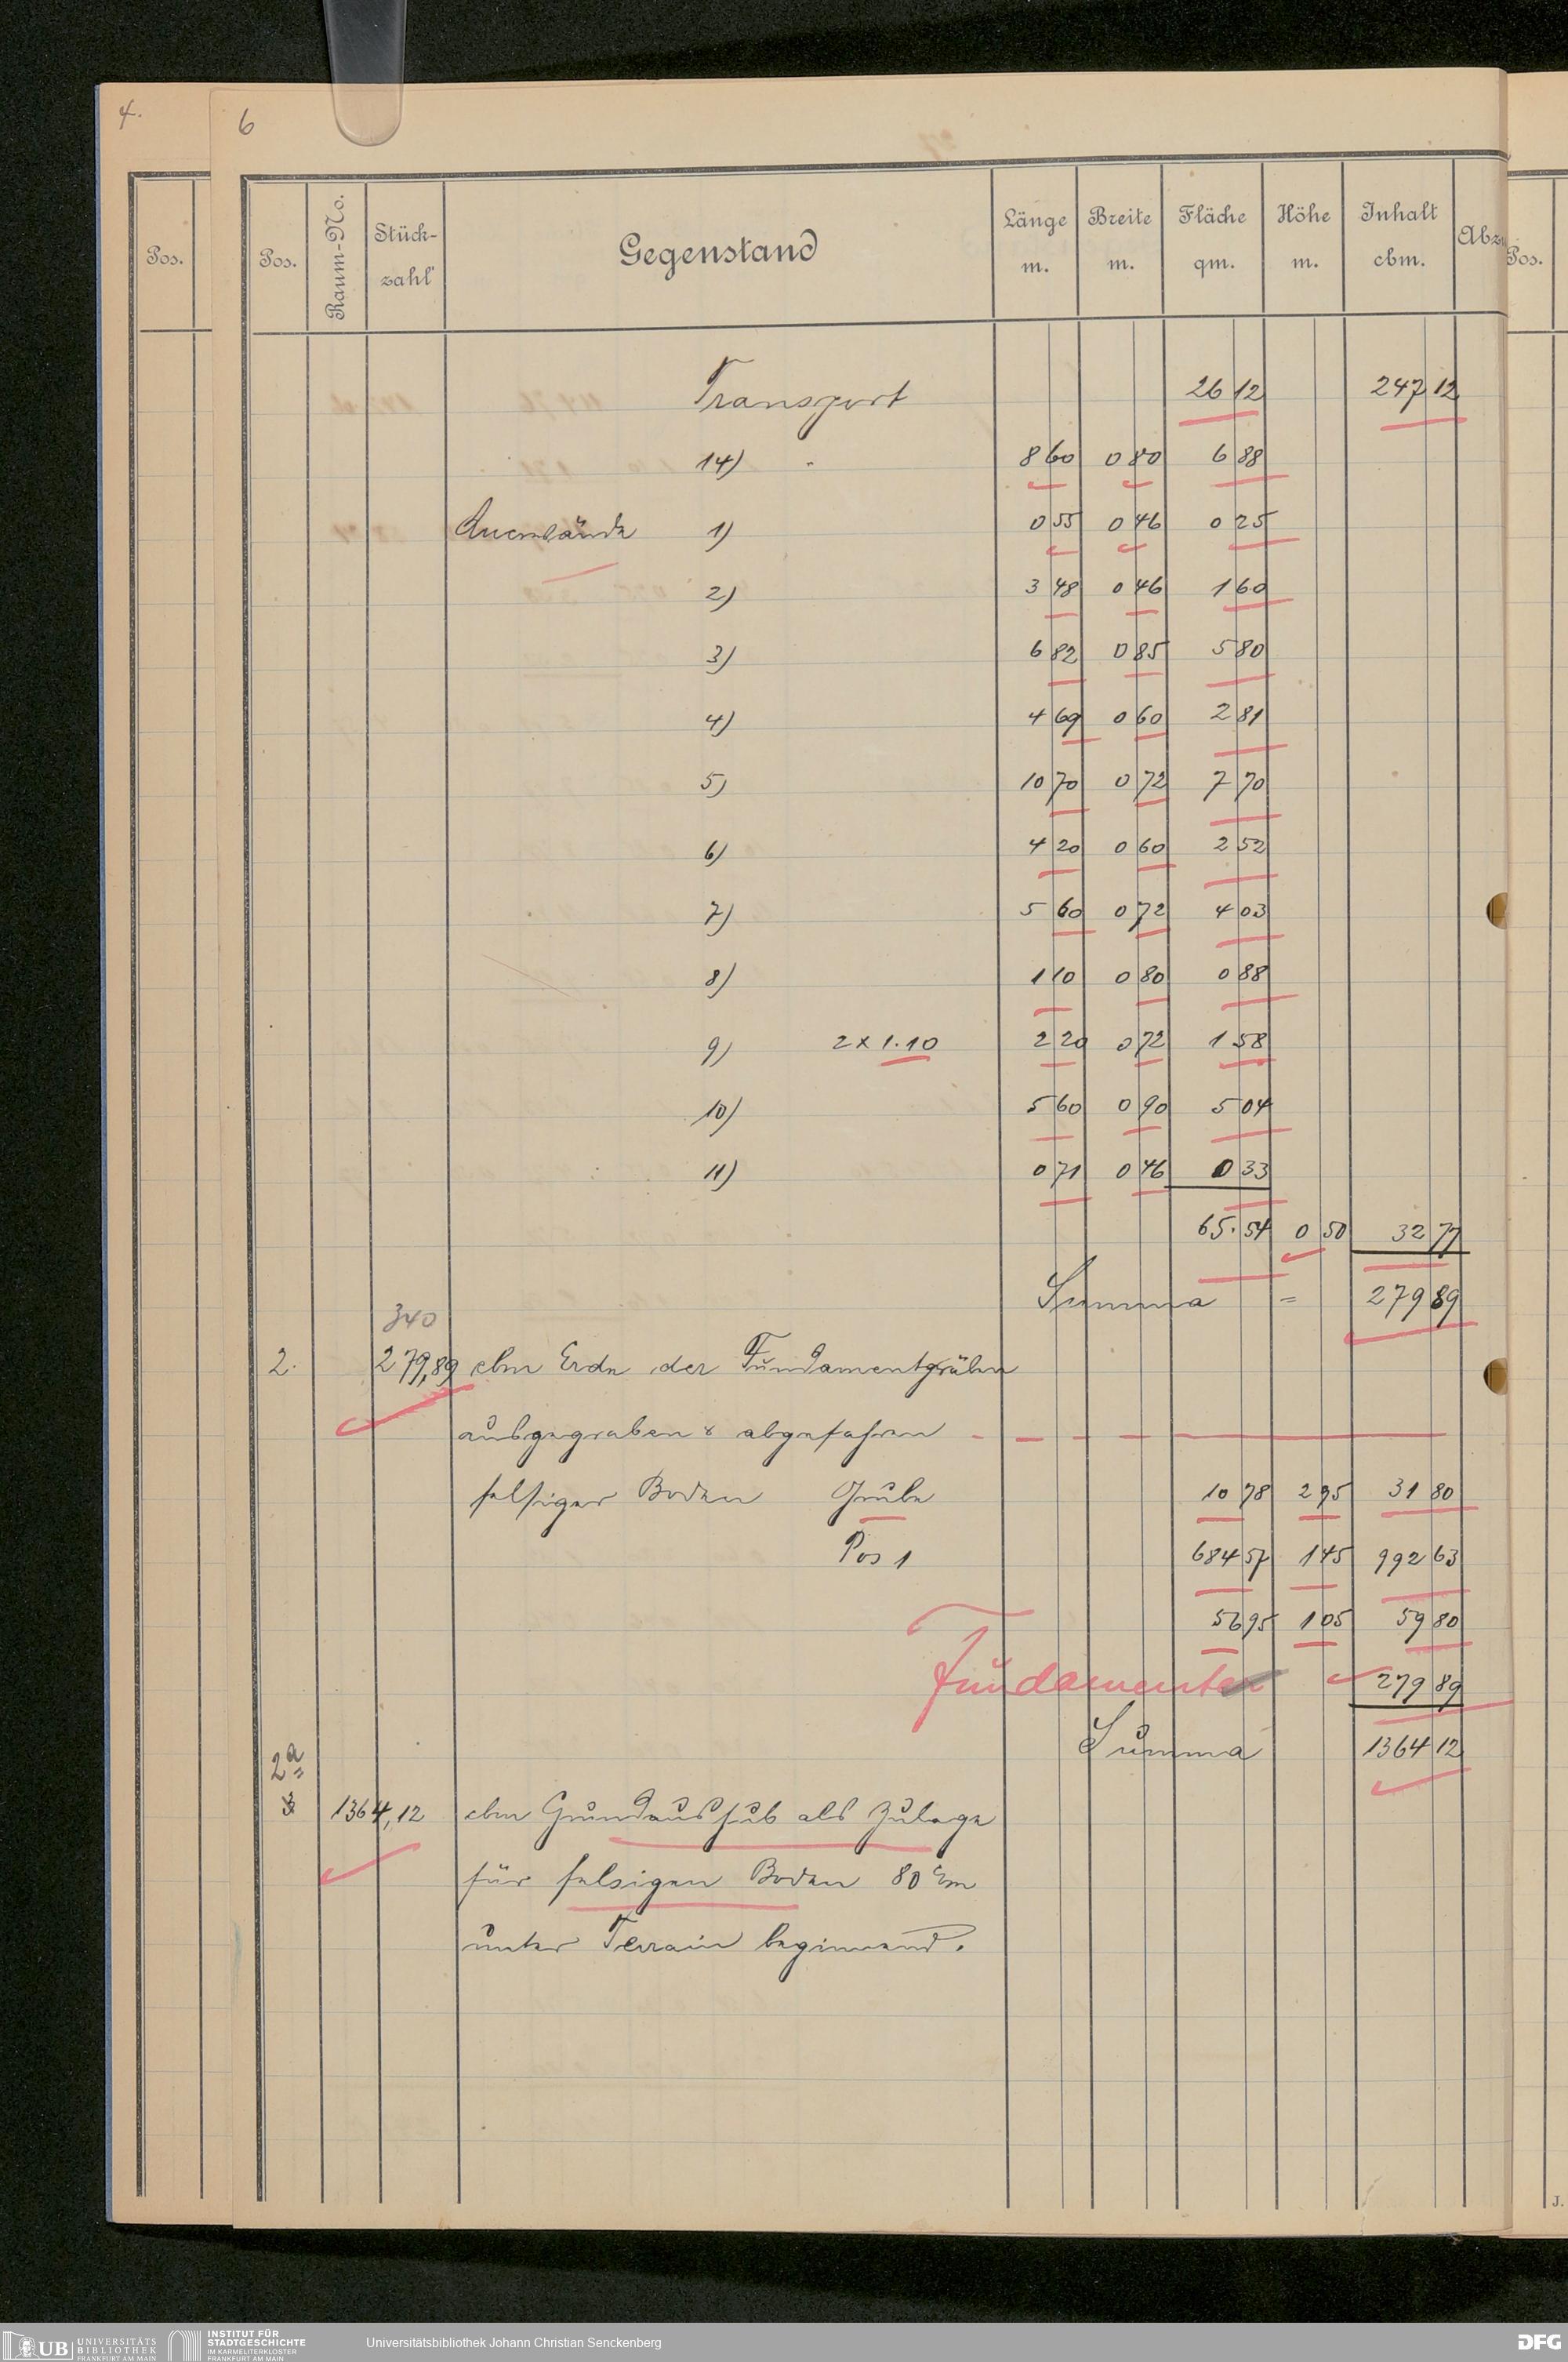 4.
6
Pos.
Pos. Raum-No. Stück-zahl Gegenstand Länge m. Breite m. Fläche qm. Höhe m. Inhalt cbm.
Pos.
Transport 26 12 247 12
14) " 8 60 0 80 6 88
1) 0 55 0 46 0 25
2) 3 48 0 46 1 60
3) 6 82 0 85 5 80
4) 4 69 0 60 2 81
5) 10 70 0 72 7 70
6) 4 20 0 60 2 52
7) 5 60 0 72 4 03
8) 1 10 0 80 0 88
9) 2 x 1.10 2 20 0 72 1 58
10) 5 60 0 90 5 04
11) 0 71 0 46 0 33
65.54 0 50 32 77
Summa = 279 89
340
2. 279,89 cbm Erde der Fundamentgräben
ausgegraben & abgefahren
felsiger Boden Grube 10 78 2 95 31 80
Pos 1 684 57 1 45 992 63
56 95 1 05 59 80
Fundamente 279 89
Summa 1364 12
2a
3 1364,12 cbm Grundaushub als Zulage
für felsigen Boden 80 cm
unter Terrain beginnend.
J.
UB UNIVERSITÄTS BIBLIOTHEK FRANKFURT AM MAIN
INSTITUT FÜR STADTGESCHICHTE IM KARMELITERKLOSTER FRANKFURT AM MAIN
Universitätsbibliothek Johann Christian Senckenberg
DFG